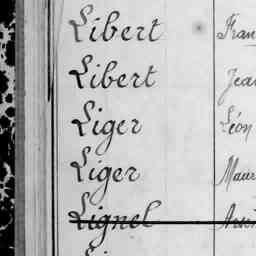 Libert Fran
Libert Jea
Liger Léon
Liger Maur
Lignel